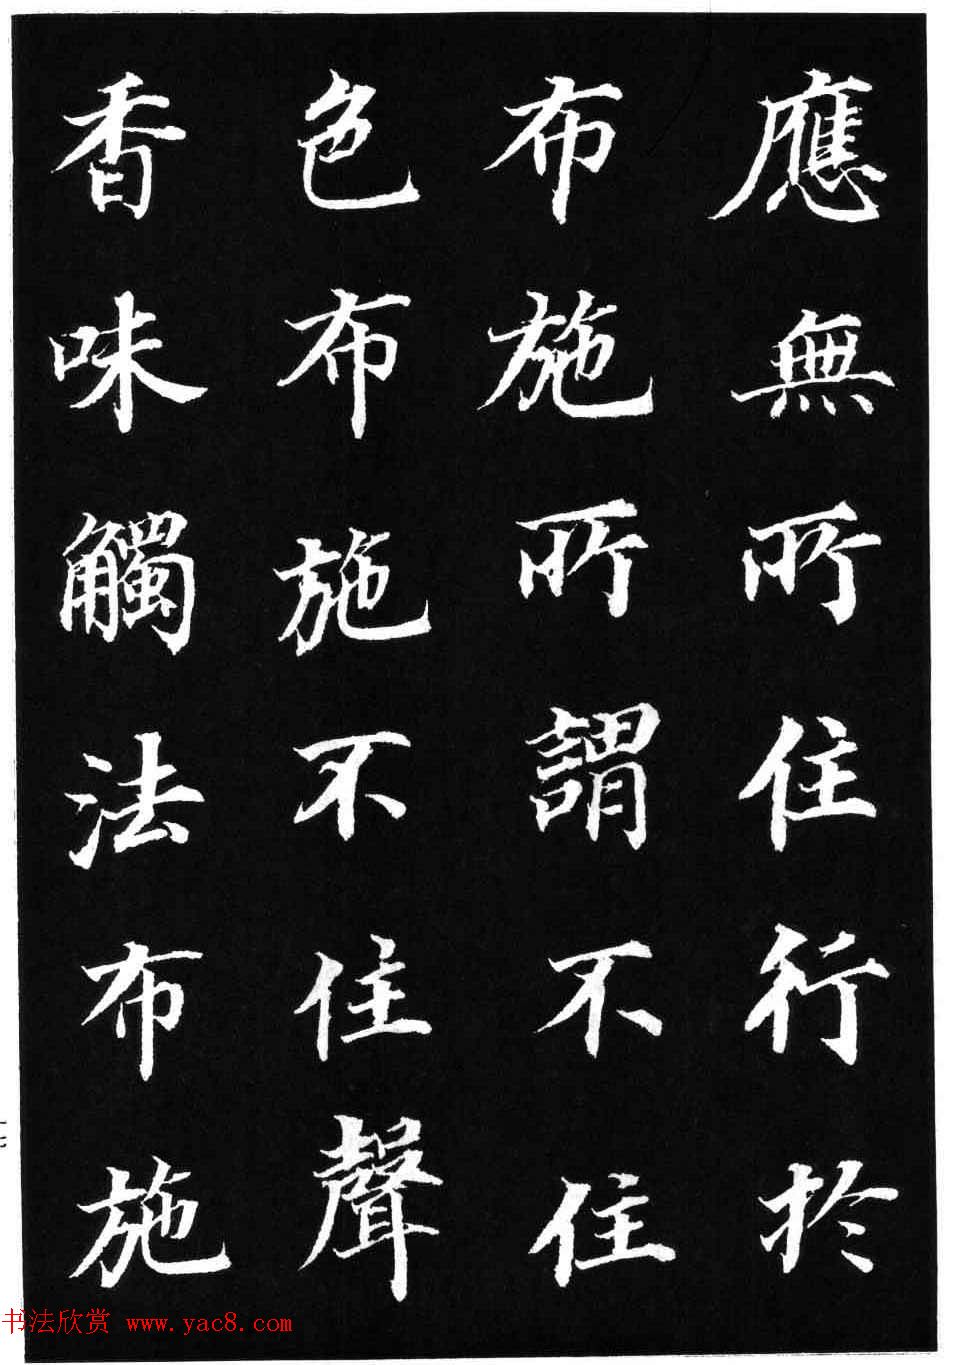 應無所住行於
布施所謂不住
色布施不住聲
香味觸法布施
书法欣赏 www.yac8.com